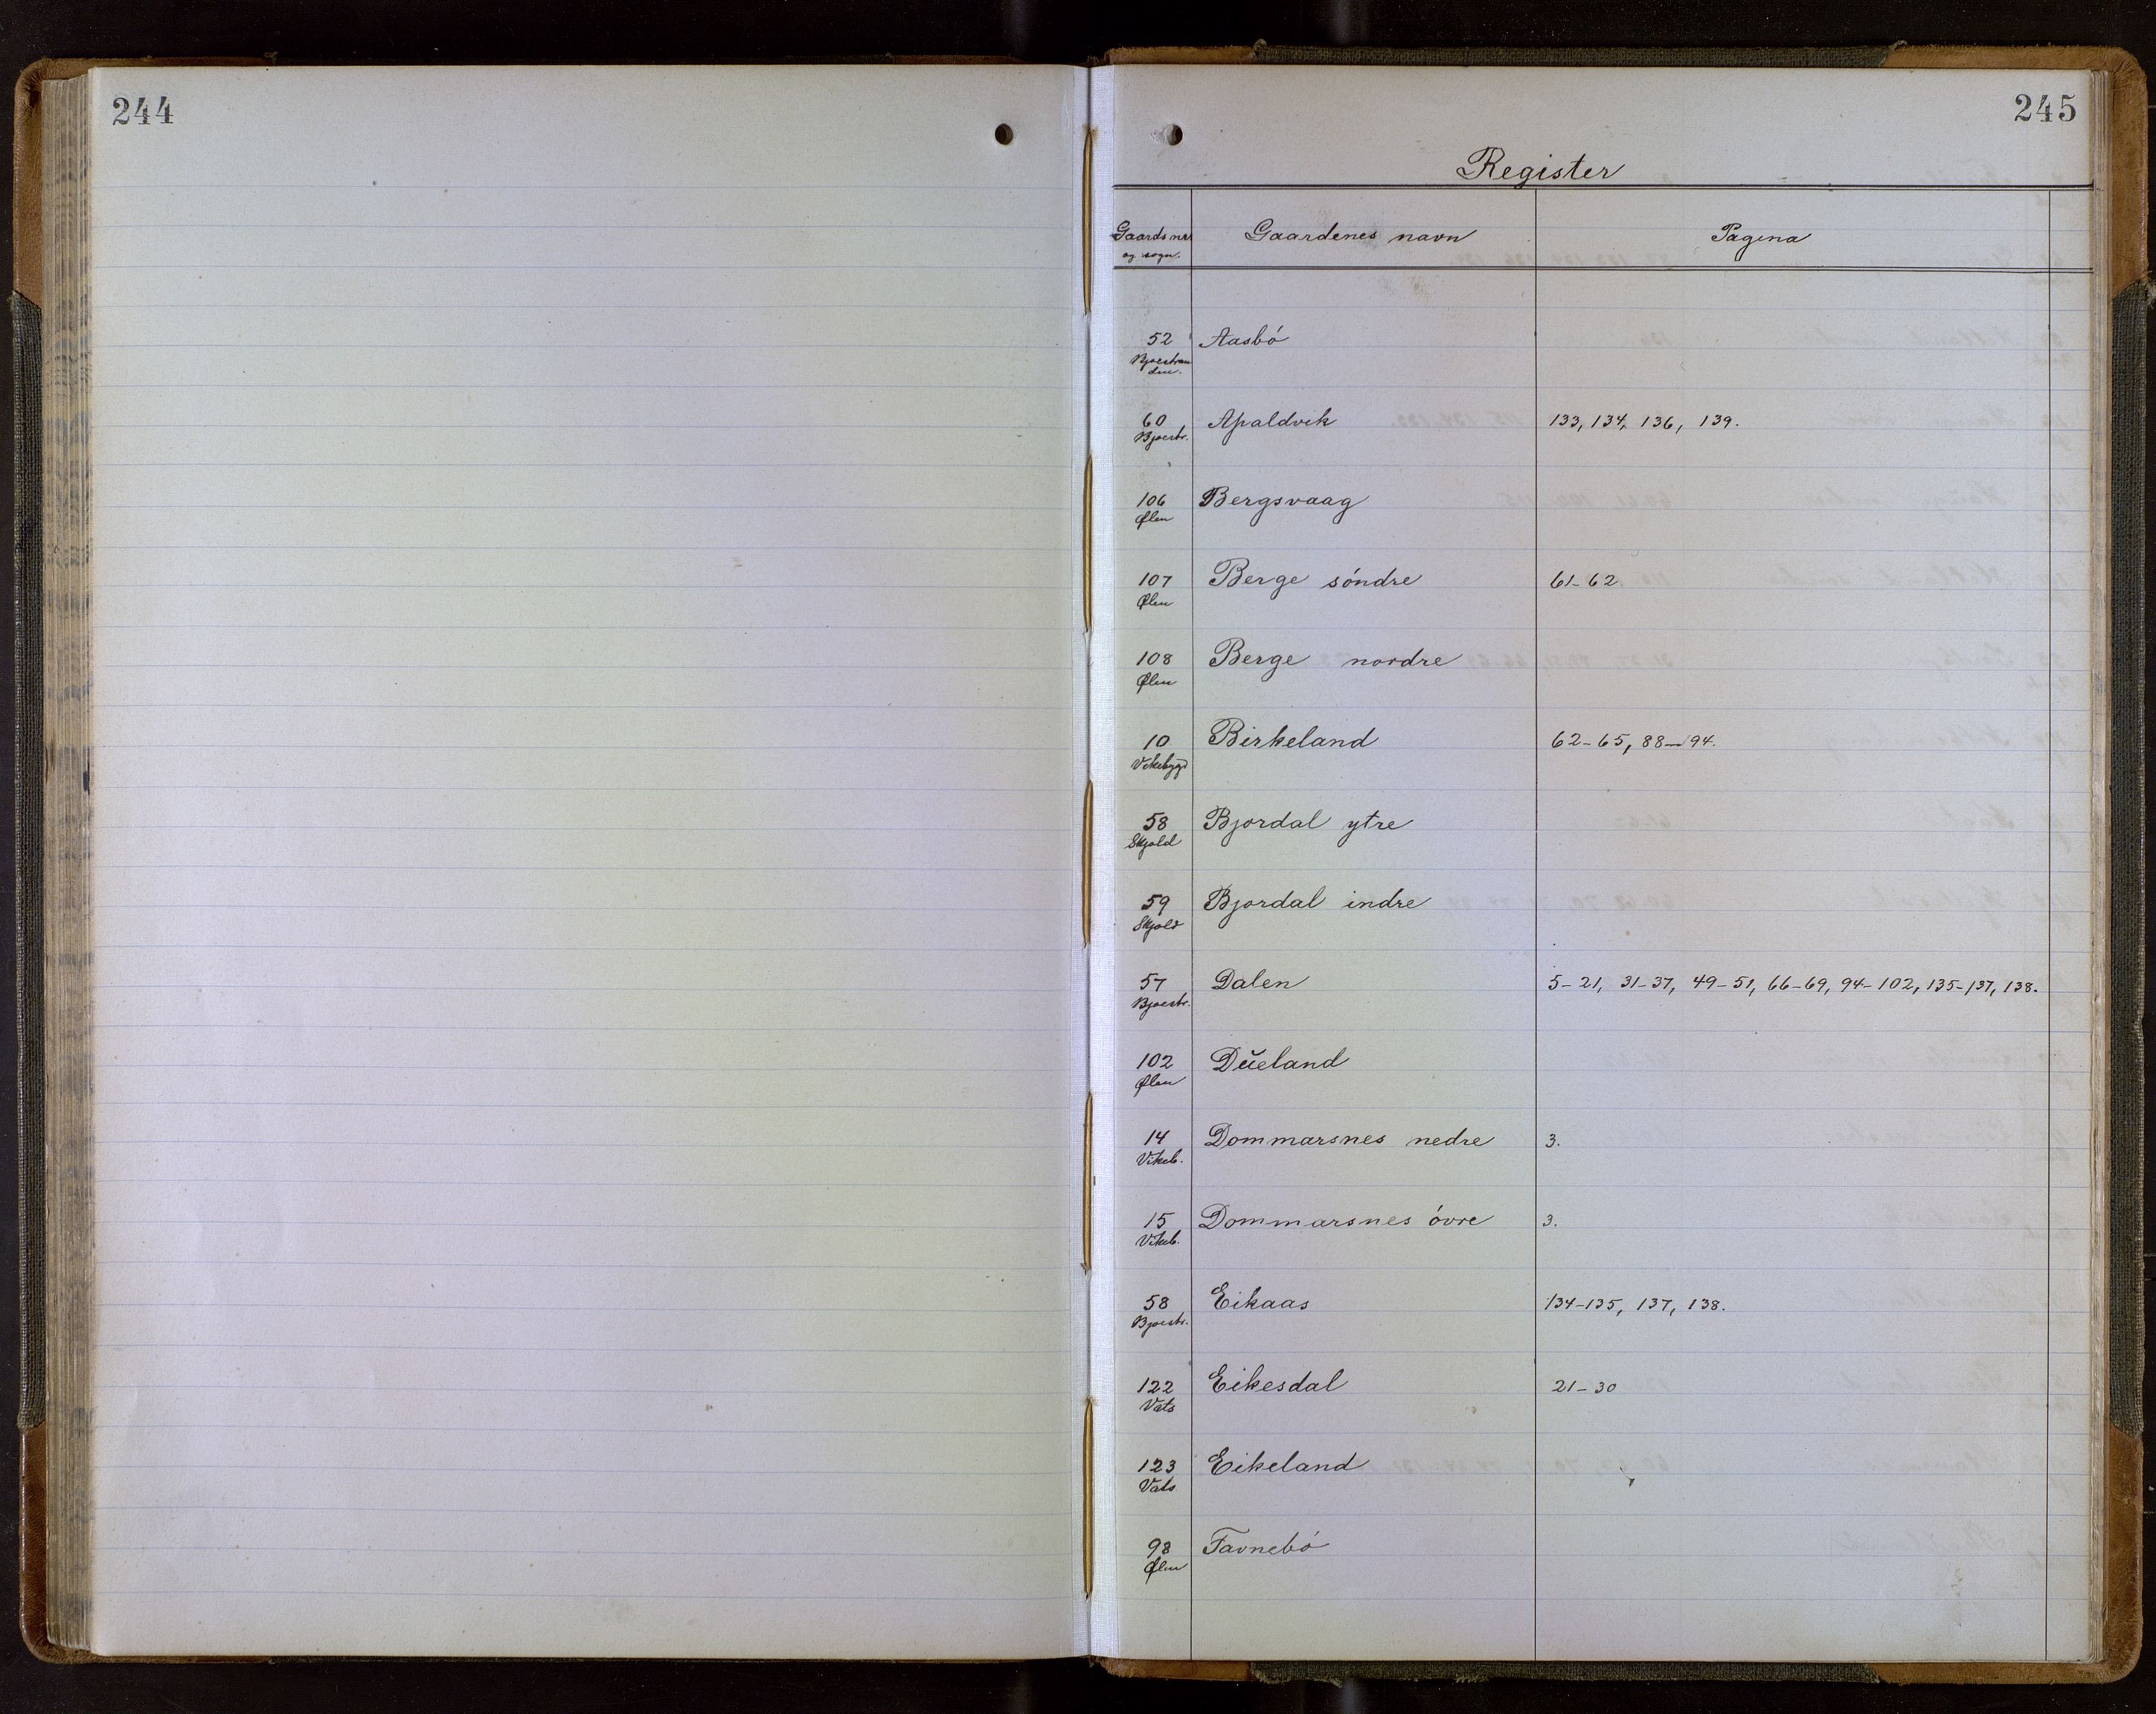 244
245
Register
Gaards nr. og sogn. Gaardenes navn Pagina
52 Aasbó
Bjoestran
den.
60 Apaldvik 133, 134, 136, 139.
Bjoestr.
106 Bergsvaag
Ølen
107 Berge søndre 61-62.
Ølen
108 Berge nordre
Ølen
10 Birkeland 62-65, 88-94.
Vikebygd
58 Bjordal ytre
Skjold
59 Bjordal indre
Skjold
57 Dalen 5-21, 31-37, 49-51, 66-69, 94-102, 135-137, 138.
Bjoestr.
102 Dŭeland
Ølen
14 Dommarsnes nedre 3.
Vikeb.
15 Dommarsnes óvre 3.
Vikeb.
58 Eikaas 134-135, 137, 138.
Bjoestr.
122 Eikesdal 21-30
Vats
123 Eikeland
Vats
98 Favnebó
Ølen